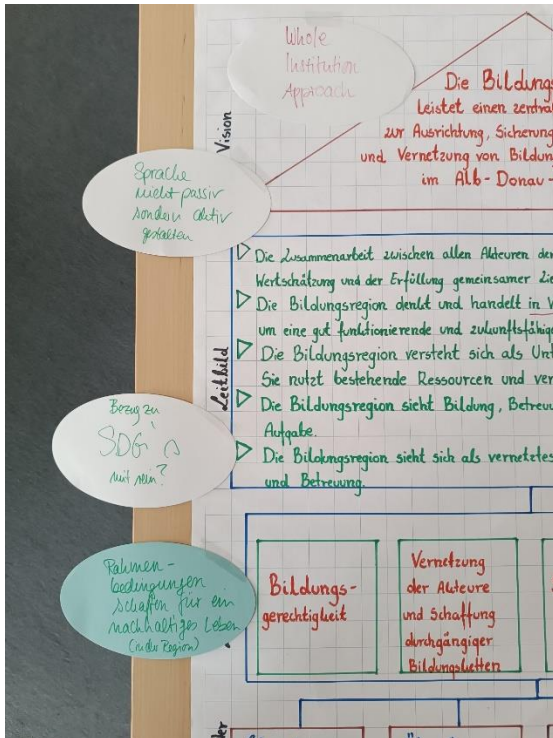 Whole
Institution
Approach
Vision
Die Bildungs
leistet einen zentral
zur Ausrichtung, Sicherung
und Vernetzung von Bildun
im Alb-Donau-
Sprache
nicht passiv
sondern aktiv
gestalten
Leitbild
Die Zusammenarbeit zwischen allen Akteuren der
Wertschätzung und der Erfüllung gemeinsamer Zie
Die Bildungsregion denkt und handelt in V
um eine gut funktionierende und zukunftsfähige
Die Bildungsregion versteht sich als Unt
Sie nutzt bestehende Ressourcen und ver
Die Bildungsregion sieht Bildung, Betreuu
Aufgabe.
Die Bildungsregion sieht sich als vernetztes
und Betreuung.
Bezug zu
SDG's
mit rein?
Rahmen-
bedingungen
schaffen für ein
nachhaltiges Leben
(in der Region)
Bildungs-
gerechtigkeit
Vernetzung
der Akteure
und Schaffung
durchgängiger
Bildungsketten
der